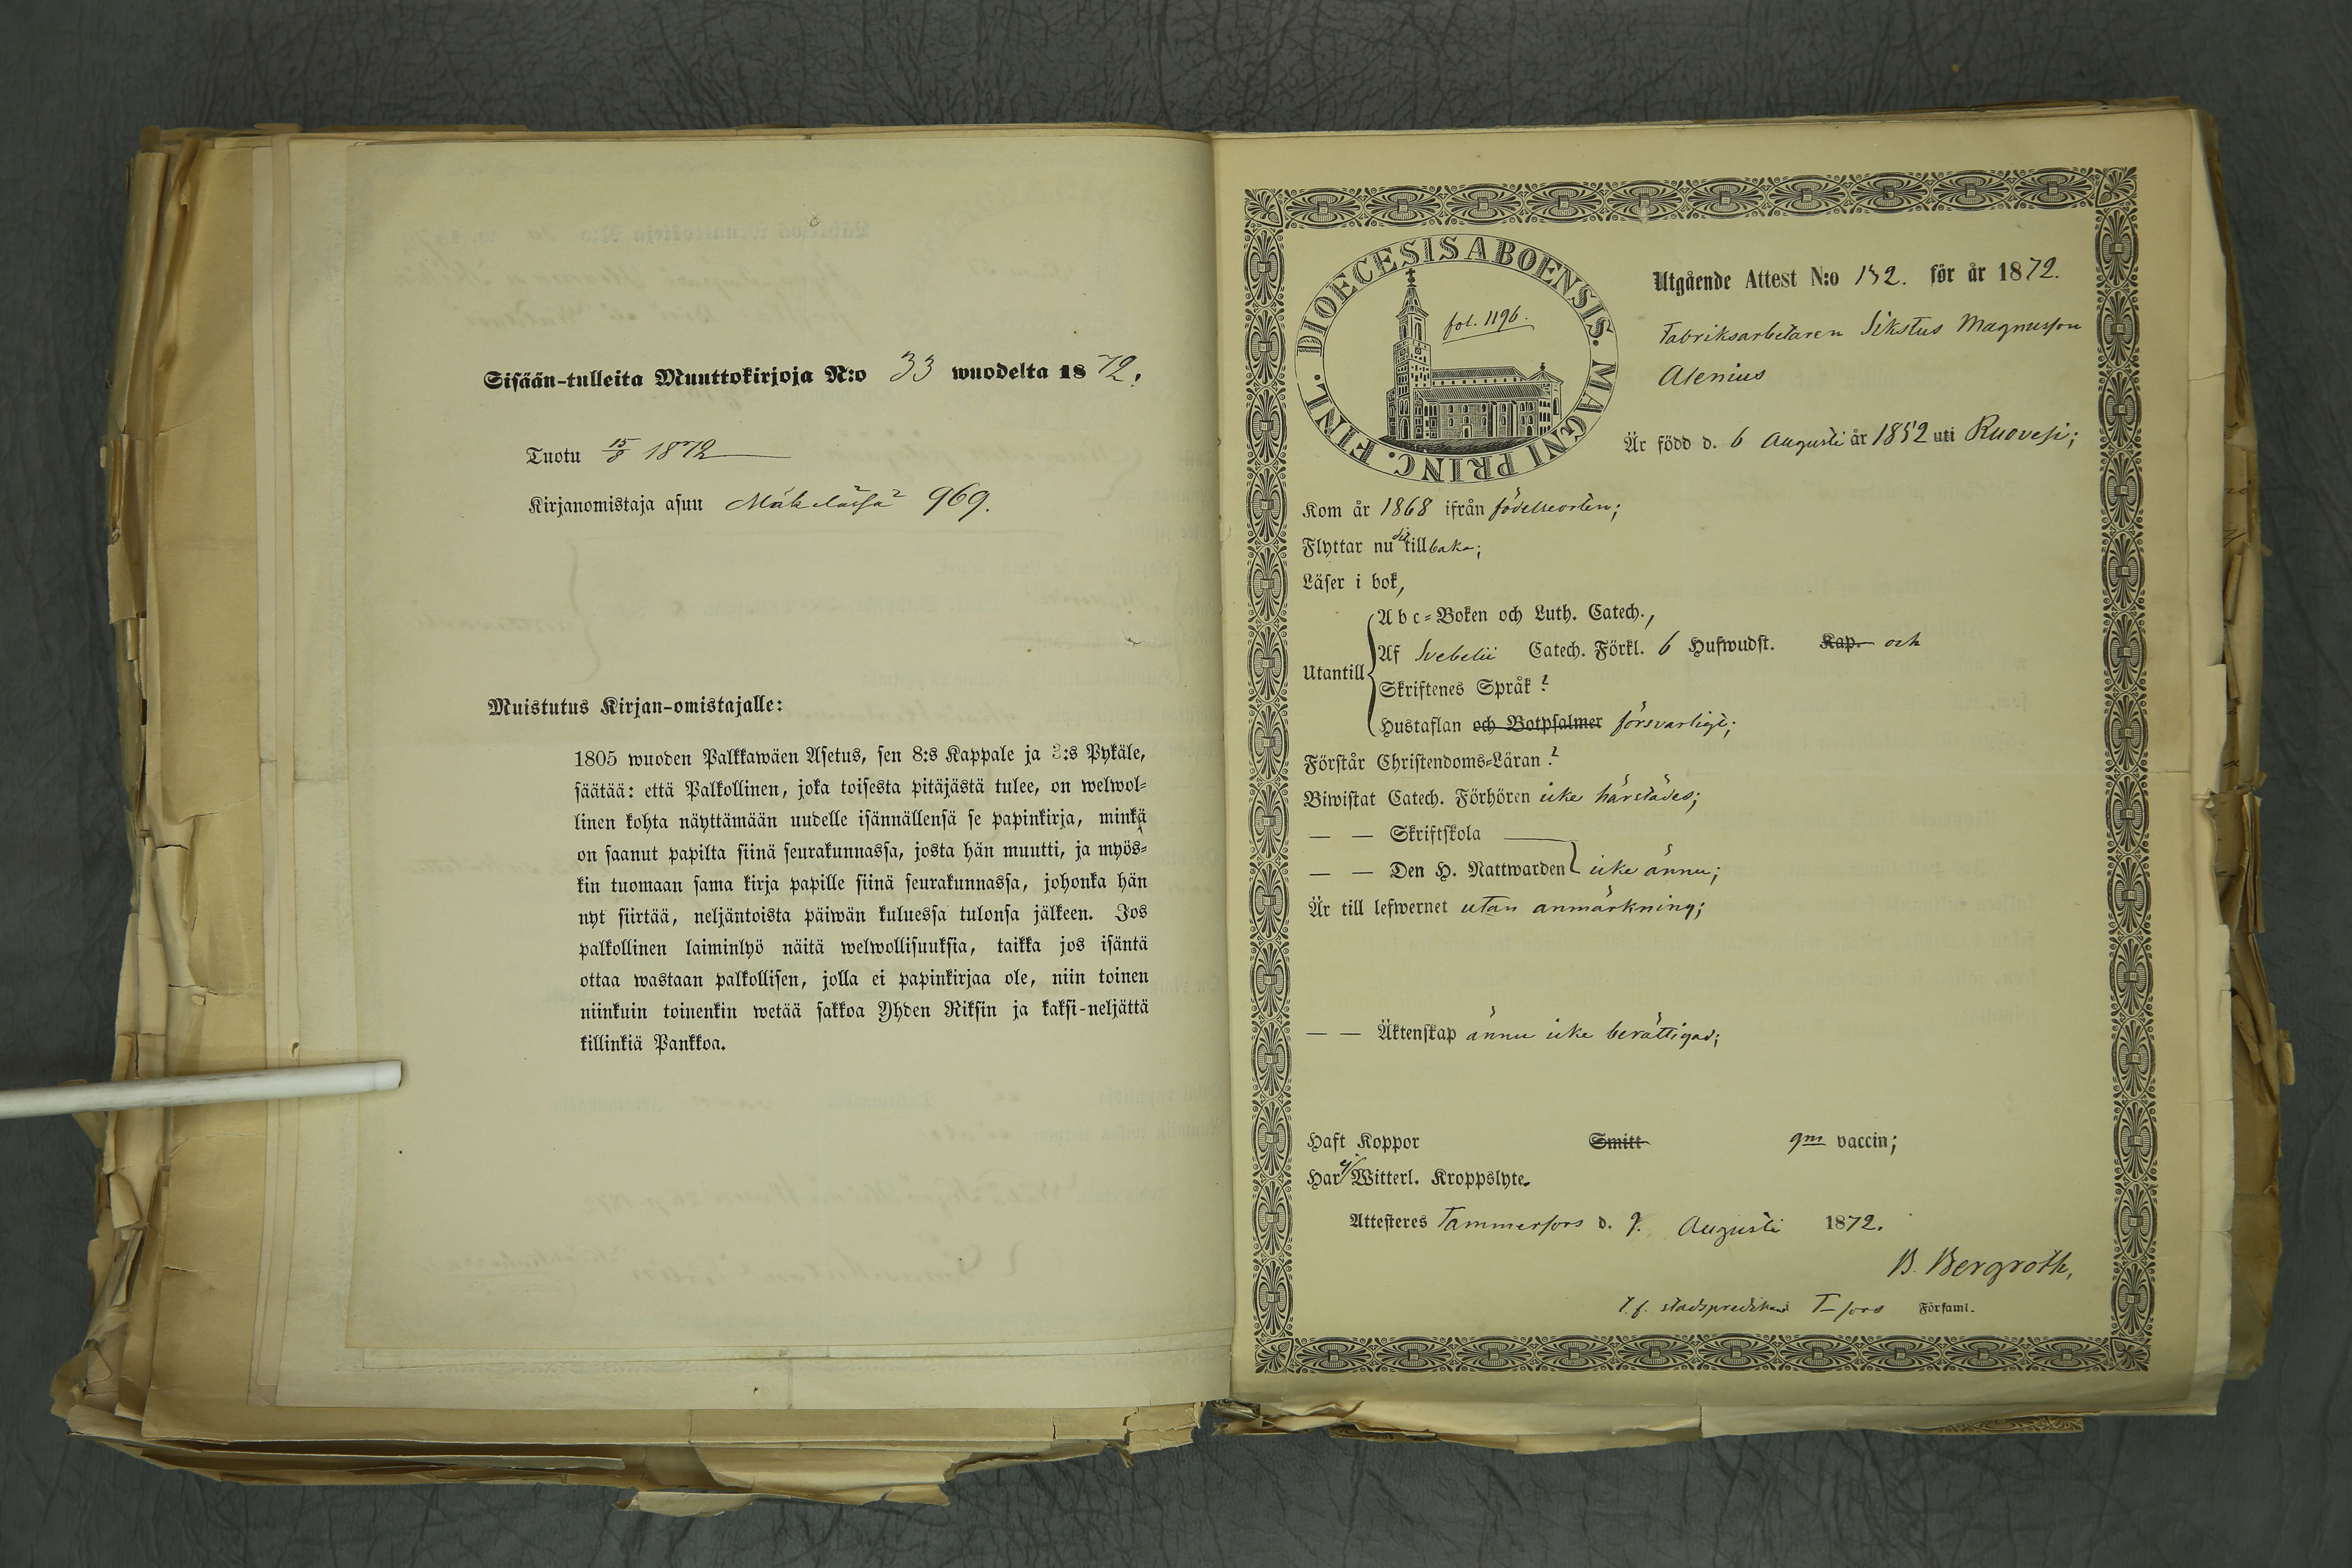 Sisään-tulleita Muuttokirjoja N:o 33 wuodelta 1872.
Tuotu 15/8 1872
Kirjanomistaja asuu Mäkelässä 969.
Muistutus Kirjan-omistajalle:
1805 wuoden Palkkawäen Asetus, sen 8:s Kappale ja 3:s Pykäle,
säätää: että Palkollinen, joka toisesta pitäjästä tulee, on welwol-
linen kohta näyttämään uudelle isännällensä se papinkirja, minkä
on saanut papilta siinä seurakunnassa, josta hän muutti, ja myös-
kin tuomaan sama kirja papille siinä seurakunnassa, johonka hän
nyt siirtää, neljäntoista päiwän kuluessa tulonsa jälkeen. Jos
palkollinen laiminlyö näitä welwollisuuksia, taikka jos isäntä
ottaa wastaan palkollisen, jolla ei papinkirjaa ole, niin toinen
niinkuin toinenkin wetää sakkoa Yhden Riksin ja kaksi-neljättä
killinkiä Pankkoa.
DIOECESIS ABOENSIS. MAGNI PRINC. FINL.
fol. 1196.
Utgående Attest N:o 132. för år 1872.
Fabriksarbetaren Sikstus Magnusson
Alenius
Är född d. 6 Augusti år 1852 uti Ruovesi;
Kom år 1868 ifrån födelseorten;
Flyttar nu dit tillbaka;
Läser i bok,
Utantill
Abc-Boken och Luth. Catech.,
Af Svebelii Catech. Förkl. 6 Hufwudst. Kap. och
Skriftenes Språk?
Hustaflan och Botpsalmer försvarligt;
Förstår Christendoms-Läran?
Biwistat Catech. Förhören icke härstädes;
— — Skriftskola
— — Den H. Nattwarden icke ännu;
Är till lefwernet utan anmärkning;
— — Äktenskap ännu icke berättigad;
Haft Koppor Smitt gm vaccin;
Har ej Witterl. Kroppslyte.
Attesteres Tammerfors d. 9. Augusti 1872.
B. Bergroth,
T. f. stadspredikant T-fors Församl.